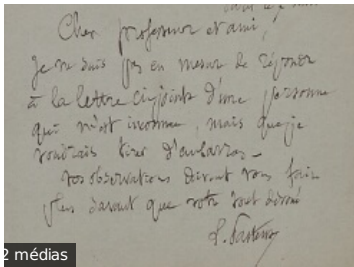 Cher professeur et ami,
Je ne suis pas en mesure de répondre
à la lettre ci-jointe d'une personne
qui m'est inconnue, mais que je
voudrais tirer d'embarras -
vos observations doivent vous faire
plus savant que votre tout dévoué
L. Pasteur
2 médias